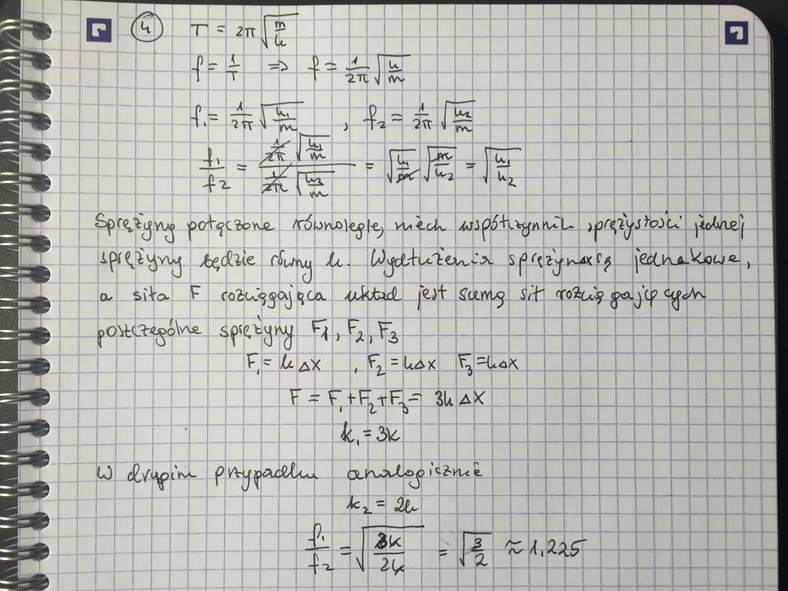 4 T = 2π√(m/k)
f = 1/T ⇒ f = 1/2π √(k/m)
f₁ = 1/2π √(k₁/m) , f₂ = 1/2π √(k₂/m)
f₁/f₂ = (1/2π √(k₁/m))/(1/2π √(k₂/m)) = √(k₁/m) √(m/k₂) = √(k₁/k₂)
Sprężyny połączone równolegle, niech współczynnik sprężystości jednej
sprężyny będzie równy k. Wydłużenia sprężyn są jednakowe,
a siła F rozciągająca układ jest sumą sił rozciągających
poszczególne sprężyny F₁, F₂, F₃
F₁ = kΔx , F₂ = kΔx F₃ = kΔx
F = F₁+F₂+F₃ = 3kΔx
k₁ = 3k
W drugim przypadku analogicznie
k₂ = 2k
f₁/f₂ = √(3k/2k) = √(3/2) ≈ 1,225